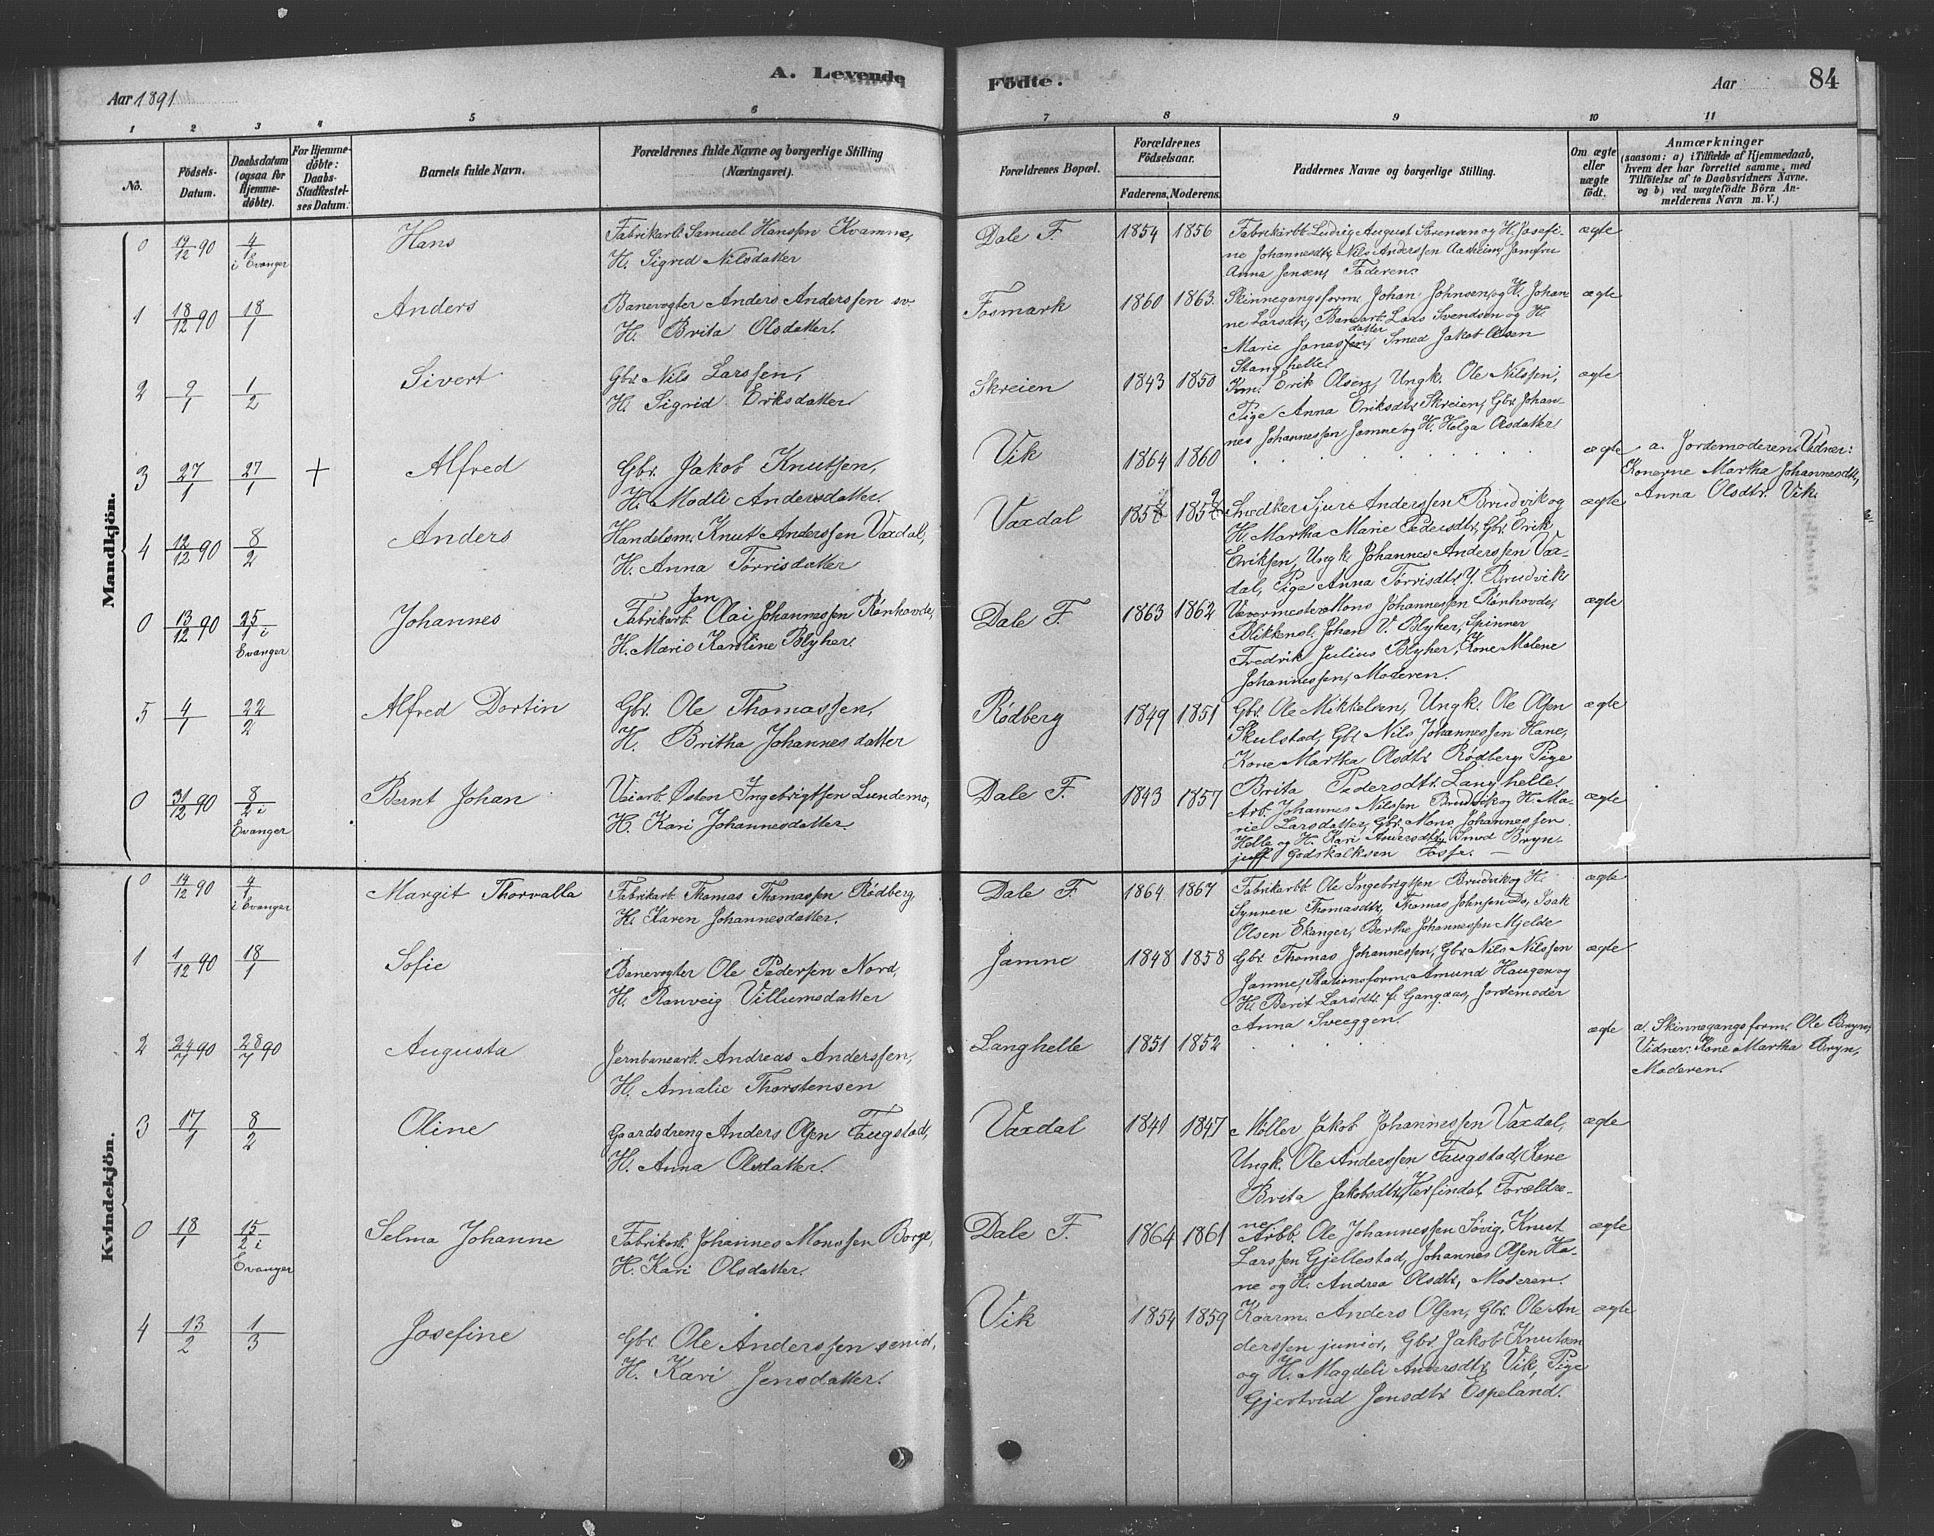 A. Levende
Födte.
84
Aar 1891
Aar
1 2 3 4 5 6 7 8 9 10 11
No.
Födsels-Datum.
Daabsdatum (ogsaa for Hjemme-döbte).
For Hjemme-döbte: Daabs-Stadfæstelses Datum.
Barnets fulde Navn.
Forældrenes fulde Navne og borgerlige Stilling (Næringsvei).
Forældrenes Bopæl.
Forældrenes Födselsaar.
Faderens. Moderens.
Faddernes Navne og borgerlige Stilling.
Om ægte eller uægte födt.
Anmærkninger
(saasom: a) i Tilfælde af Hjemmedaab, hvem der har forrettet samme, med Tilföielse af to Daabsvidners Navne. og b) ved uægtefödte Börn Anmelderens Navn m. V.)
Mandkjön.
0 19/12 90 4/1 i Evanger Hans
Fabrikarb. Samuel Hanssen Kvamme,
H. Sigrid Nilsdatter
Dale F. 1854 1856
Fabrikarbb. Ludvig August Sørensen og H. Josefi-
ne Johannesdtr, Nils Anderssen Aasheim, Jomfru
Anna Jensen, Faderen.
ægte
1 18/12 90 18/1 Anders
Banevogter Anders Anderssen
H. Brita Olsdatter.
Fosmark 1860 1863.
Skinnegangsform. Johan Johnsen og H. Johan-
ne Larsdtr, Banearb. Lars Svendsen og H.
Marie Jonasdatter, Smed Jakob Olsen
Stanghelle.
ægte
2 9/1 1/2 Sivert
Gbr. Nils Larssen,
H. Sigrid Eriksdatter.
Skreien 1843 1850
Km. Erik Olsen, Ungk. Ole Nilssen,
Pige Anna Eriksdtr Skreien, Gbr. Johan-
nes Johannessen Jamne og H. Helga Olsdatter.
ægte
3 27/1 27/1 + Alfred
Gbr. Jakob Knutsen,
H. Modli Andersdatter.
Vik 1864 1860
ægte
a. Jordemoderen. Vidner:
Konerne Martha Johannesdtr,
Anna Olsdtr. Vik.
4 12/12 90 8/2 Anders
Handelsm. Knut Anderssen Vaxdal,
H. Anna Torrisdatter
Vaxdal
Snedker Sjur Anderssen Brudvik og
H. Martha Marie Pedersdtr, Gbr. Erik
Eriksen, Ungk. Johannes Anderssen Vax-
dal, Pige Anna Torrisdtr. Y. Brudvik
ægte
0 13/12 90 25/1 i Evanger Johannes
Fabrikarb. Jan Olai Johannessen Rønhovde,
H. Marie Karoline Blyher.
Dale F. 1863 1862
Vævermester Mons Johannessen Rønhovde,
Blikkensl. Johan V. Blyher, Spinner
Fredrik Julius Blyher, Kone Malene
Johannessen, Moderen.
ægte
5 4/1 22/2 Alfred Dortin
Gbr. Ole Thomassen,
H. Britha Johannesdatter
Rødberg 1849 1851
Gbr. Ole Mikkelsen, Ungk. Ole Olsen
Skulstad, Gbr. Nils Johannessen Hane,
Kone Martha Olsdtr. Rødberg, Pige
Brita Pedersdtr. Langhelle.
ægte
0 31/12 90 8/2 i Evanger Bernt Johan
Veiarb. Østen Ingebrigtsen Lundemo,
H. Kari Johannesdatter.
Dale F. 1843 1857
Arb. Johannes Nilssen Brudvik og H. Ma-
rie Larsdatter, Gbr. Mons Johannessen
Helle og H. Kari Andersdtr, Smed Bryn-
julf Godskalksen Fosse.
ægte
Kvindekjön.
0 14/12 90 4/1 i Evanger Margit Thorvalla
Fabrikarb. Thomas Thomassen Rødberg,
H. Karen Johannesdatter.
Dale F. 1864 1867
Fabrikarbb. Ole Ingebrigtsen Brudvik og H.
Synneve Thomasdtr, Thomas Johnsen Do, Isak
Olsen Ekanger, Berthe Johannessen Mjelde
ægte
1 1/12 90 18/1 Sofie
Banevogter Ole Pedersen Nord,
H. Ranveig Villumsdatter
Jamne 1848 1858
Gbr. Thomas Johannessen, Gbr. Nils Nilssen
Jamne, Stationsform. Amund Haugen og
H. Berit Larsdtr. f. Gangaas, Jordemoder
Anna Sveeggen.
ægte
2 24/7 90 28/7 90 Augusta
Jernbanearb. Andreas Anderssen,
H. Amalie Thorstensen
Langhelle 1851 1852
ægte
a. Skinnegangsform. Ole Bryn,
Vidner: Kone Martha Bryn,
Moderen.
3 17/1 8/2 Oline
Gaardsdreng Anders Olsen Faugstad,
H. Anna Olsdatter.
Vaxdal 1841 1847
Møller Jakob Johannessen Vaxdal,
Ungk. Ole Anderssen Faugstad, Kone
Brita Jakobsdtr, Herfindal, Forældre-
ne
ægte
0 18/1 15/2 i Evanger Selma Johanne
Fabrikarb. Johannes Monssen Borge,
H. Kari Olsdatter.
Dale F. 1864 1861
Arbb. Ole Johannessen Søvig, Knut
Larssen Gjellestad, Johannes Olsen Ha-
ne og H. Andrea Olsdtr, Moderen.
ægte
4 13/2 1/3 Josefine
Gbr. Ole Anderssen senior,
H. Kari Jensdatter.
Vik 1854 1859
Kaarm. Anders Olsen, Gbr. Ole An-
derssen junior, Gbr. Jakob Knutsen
og H. Magdeli Andersdtr. Vik, Pige
Gjertrud Jensdtr. Espeland.
ægte